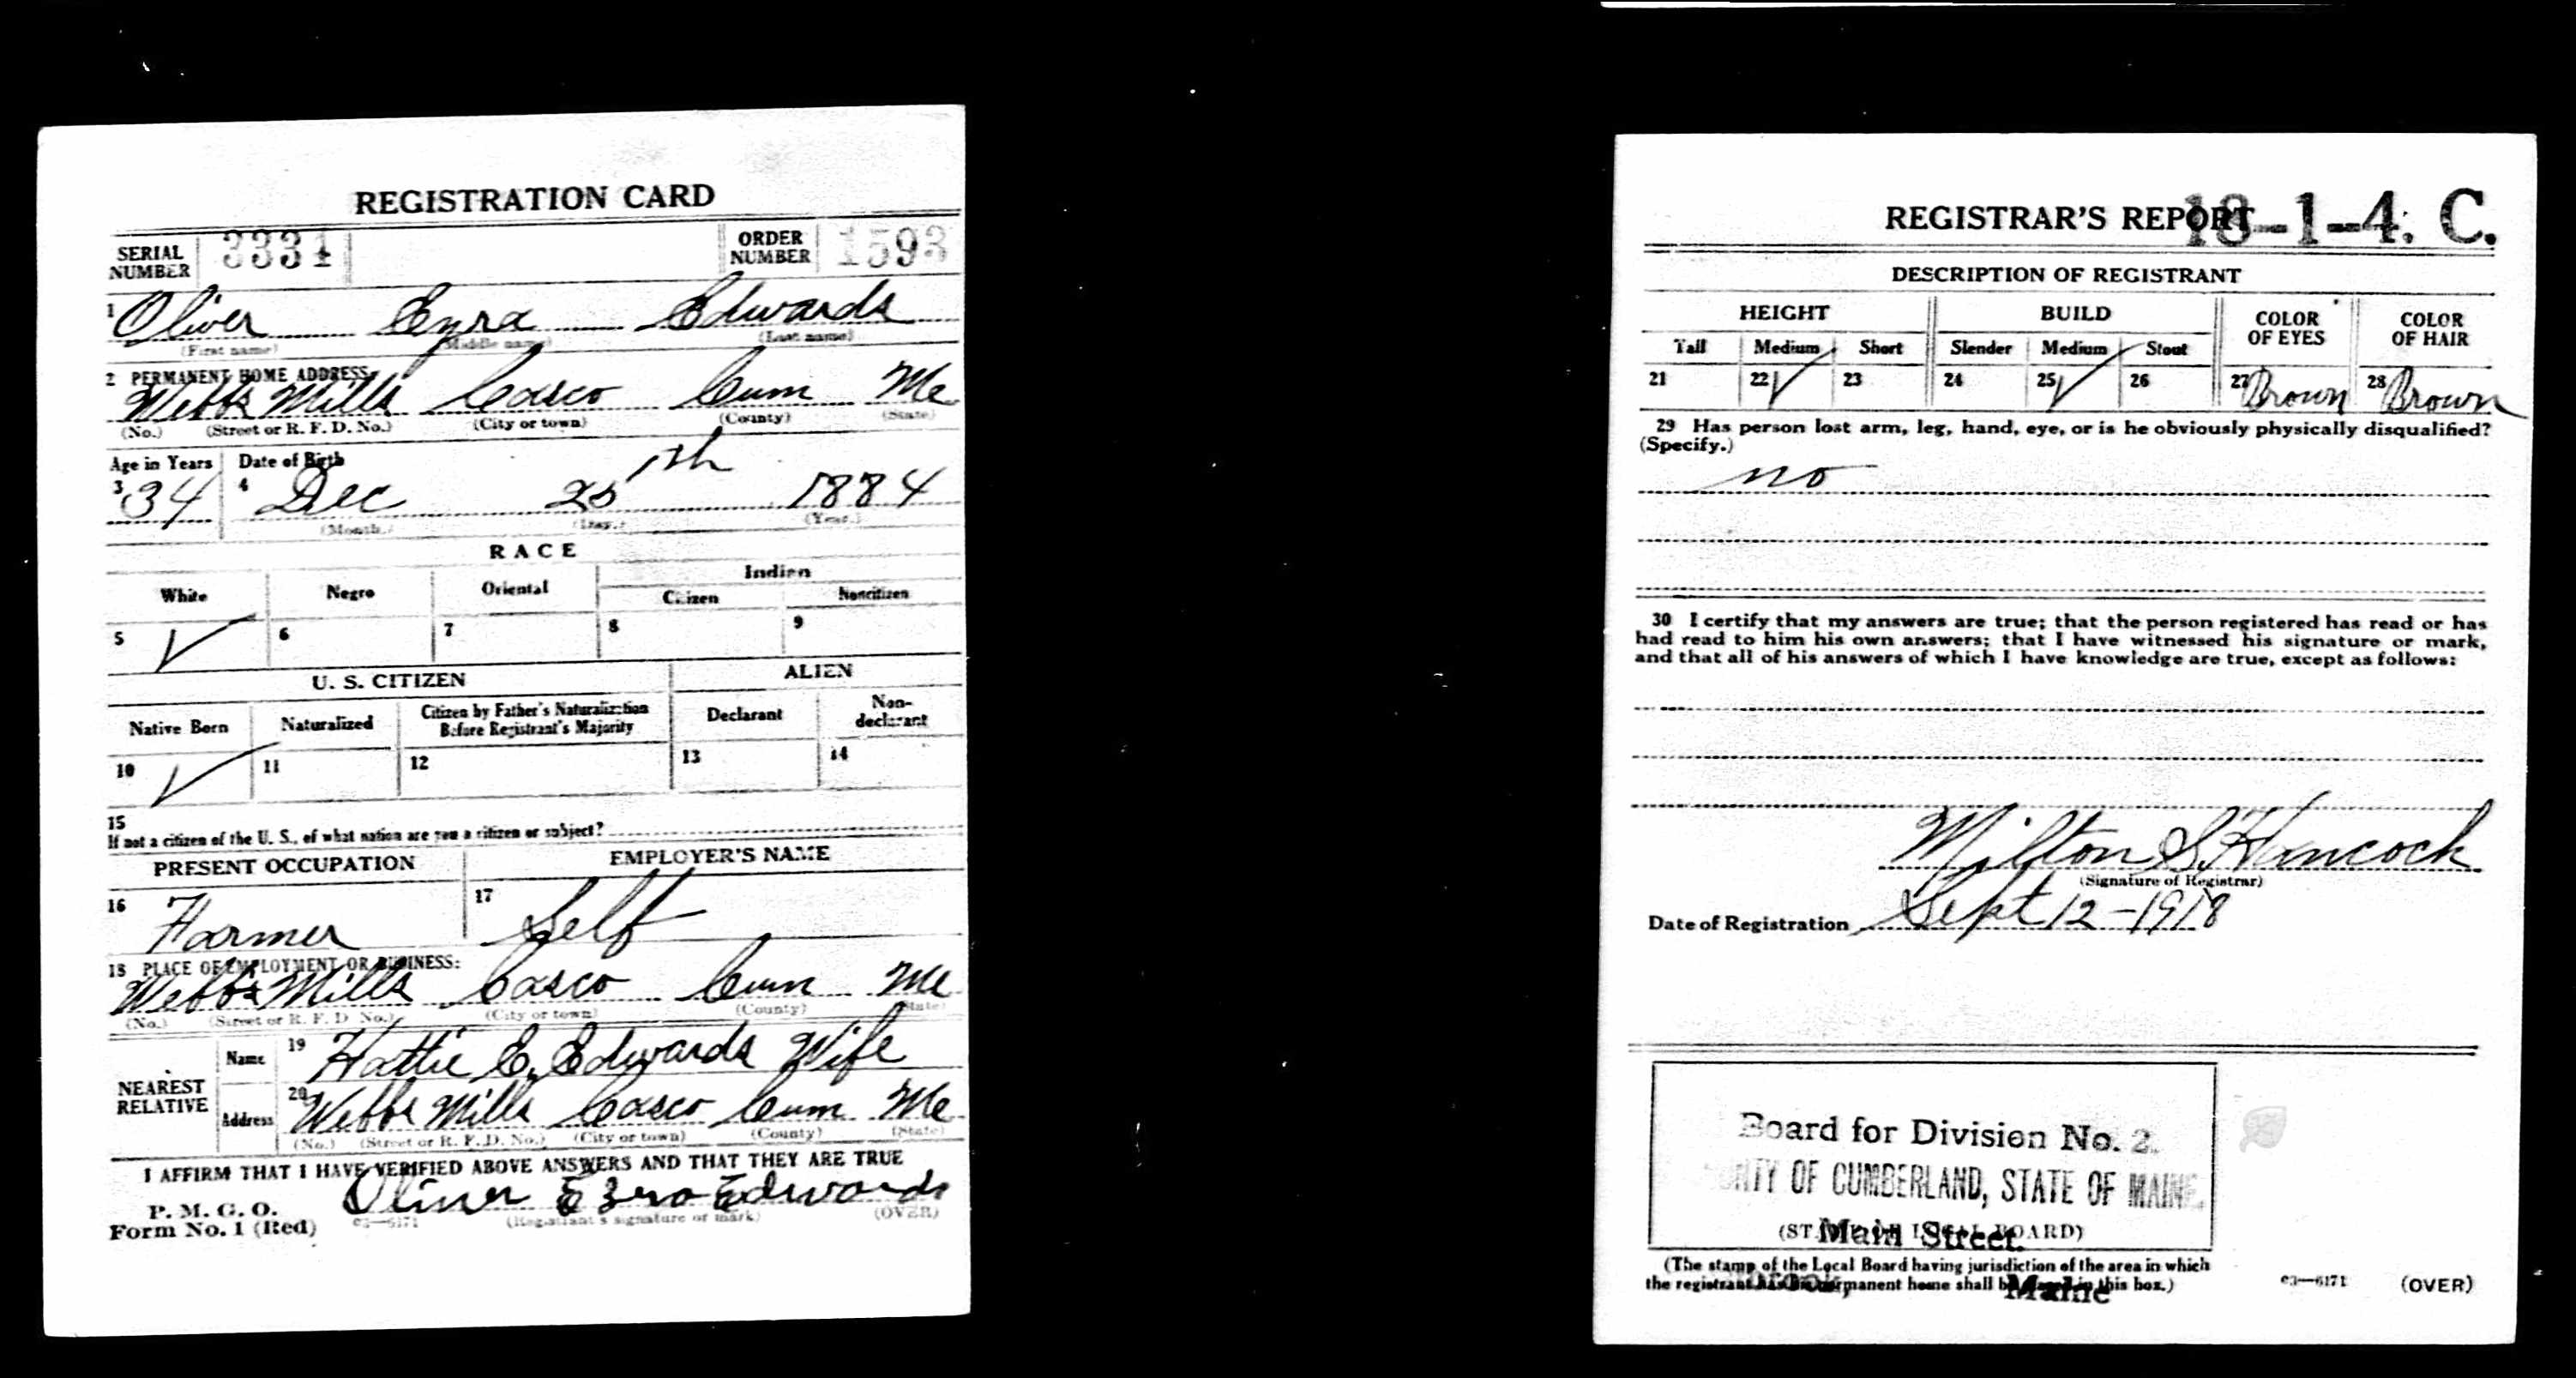 REGISTRATION CARD
SERIAL NUMBER 3334 ORDER NUMBER 1593
1 Oliver Ezra Edwards
(First name) (Middle name) (Last name)
2 PERMANENT HOME ADDRESS:
Webbs Mills Casco Cum Me
(No.) (Street or R. F. D. No.) (City or town) (County) (State)
Age in Years Date of Birth
3 34 4 Dec 25th 1884
(Month.) (Day.) (Year.)
RACE
White Negro Oriental Indian
Citizen Noncitizen
5 ✓ 6 7 8 9
U. S. CITIZEN ALIEN
Native Born Naturalized Citizen by Father's Naturalization Before Registrant's Majority Declarant Non-declarant
10 ✓ 11 12 13 14
15
If not a citizen of the U. S., of what nation are you a citizen or subject?
PRESENT OCCUPATION EMPLOYER'S NAME
16 Farmer 17 Self
18 PLACE OF EMPLOYMENT OR BUSINESS:
Webbs Mills Casco Cum Me
(No.) (Street or R. F. D. No.) (City or town) (County) (State)
NEAREST RELATIVE
Name 19 Hattie E. Edwards Wife
Address 20 Webbs Mills Casco Cum Me
(No.) (Street or R. F. D. No.) (City or town) (County) (State)
I AFFIRM THAT I HAVE VERIFIED ABOVE ANSWERS AND THAT THEY ARE TRUE
P. M. G. O.
Form No. 1 (Red) 03—6171
Oliver Ezra Edwards
(Registrant's signature or mark) (OVER)
REGISTRAR'S REPORT 18-1-4. C.
DESCRIPTION OF REGISTRANT
HEIGHT BUILD COLOR OF EYES COLOR OF HAIR
Tall Medium Short Slender Medium Stout
21 22 ✓ 23 24 25 ✓ 26 27 Brown 28 Brown
29 Has person lost arm, leg, hand, eye, or is he obviously physically disqualified?
(Specify.)
no
30 I certify that my answers are true; that the person registered has read or has
had read to him his own answers; that I have witnessed his signature or mark,
and that all of his answers of which I have knowledge are true, except as follows:
Milton S. Hancock
(Signature of Registrar)
Date of Registration Sept 12-1918
Board for Division No. 2.
OF CUMBERLAND, STATE OF MAINE.
(STAMP OF LOCAL BOARD)
Main Street.
(The stamp of the Local Board having jurisdiction of the area in which
the registrant has his permanent home shall be placed in this box.)
Maine
03—6171 (OVER)